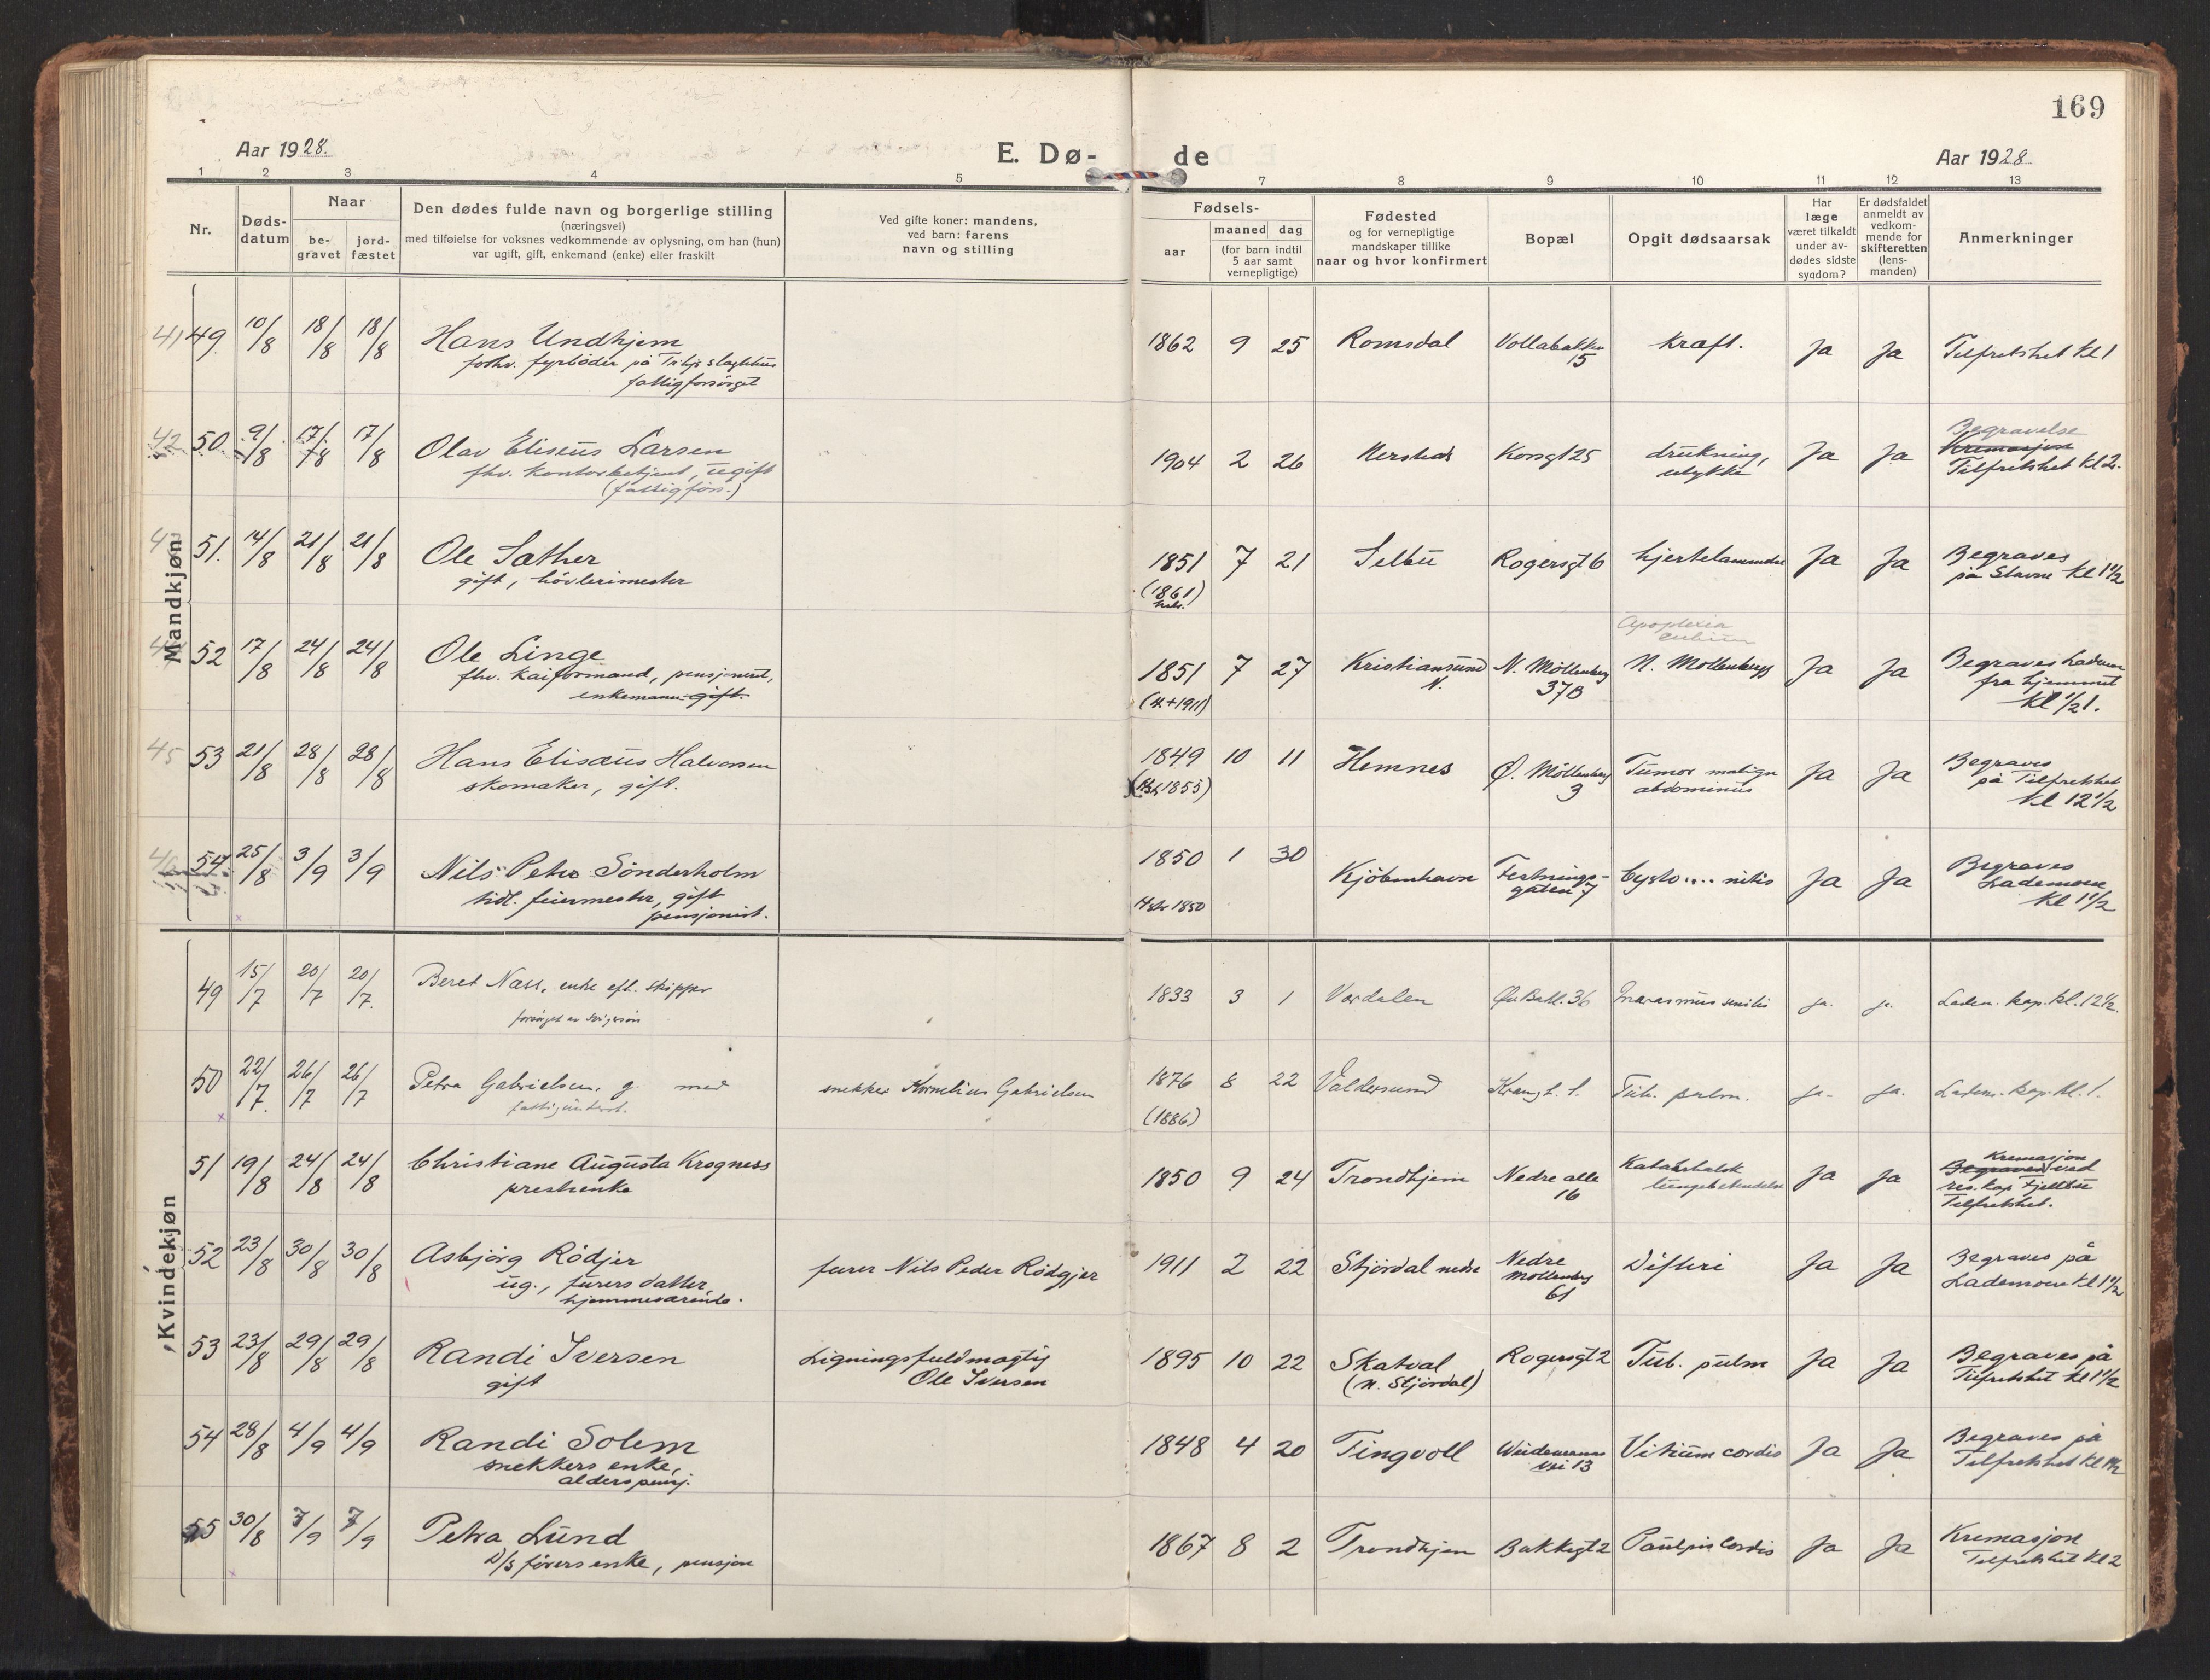 169
Aar 1928.
E. Dø-
de
Aar 1928
1 2 3 4 5 7 8 9 10 11 12 13
Nr.
Døds-
datum
Naar
be-
gravet
jord-
fæstet
Den dødes fulde navn og borgerlige stilling
(næringsvei)
med tilføielse for voksnes vedkommende av oplysning, om han (hun)
var ugift, gift, enkemand (enke) eller fraskilt
Ved gifte koner: mandens,
ved barn: farens
navn og stilling
Fødsels-
aar
maaned dag
(for barn indtil
5 aar samt
vernepligtige)
Fødested
og for vernepligtige
mandskaper tillike
naar og hvor konfirmert
Bopæl
Opgit dødsaarsak
Har
læge
været tilkaldt
under av-
dødes sidste
sygdom?
Er dødsfaldet
anmeldt av
vedkom-
mende for
skifteretten
(lens-
manden)
Anmerkninger
Mandkjøn
41 49. 10/8 18/8 18/8 Hans Undhjem 1862 9 25 Romsdal Vollabakke 15 kræft. Ja Ja Tilfretshet kl 1
forhv. fyrbøder på Tr.hjs slagtehus
fattigforsörget
42 50. 9/8 17/8 17/8 Olav Eliseus Larsen 1904 2 26 Korsgt 25 drukning, ulykke Ja Ja Begravelse
Kremasjon
Tilfretshet kl 2.
fhv. kontorbetjent, ugift
(fattigförs.)
51. 14/8 21/8 21/8 Ole Sæther 1851 7 21 Selbu Rogersgt 6 hjertelammelse Ja Ja Begraves
på Stavne kl 1 1/2
gift, hövlerimester
(1861)
52 17/8 24/8 24/8 Ole Linge 1851 7 27 Kristiansund N. N. Möllenberg 37B Apoplexia
N. Möllenberg Ja Ja Begraves Ladem
fra hjemmet
kl 1/2 1.
fhv. kaiformand, pensjonert,
enkemann gift.
(H. + 1911)
45 53 21/8 28/8 28/8 Hans Elisæus Halvorsen 1849 10 11 Hemnes Ö. Möllenberg 3 Tumor malign abdominus Ja Ja Begraves
på Tilfretshet
kl 12 1/2
skomaker, gift.
1855)
46 54 25/8 3/9 3/9 Nils Peter Sönderholm 1850 1 30 Kjöbenhavn Festnings-
gaten 7 Cysto.... nitis Ja Ja Begraves
Lademoen
kl 1 1/2
tidl. feiermester, gift
pensjonist.
1850
Kvindekjøn
49 15/7 20/7 20/7. Beret Næss, enke eft. skipper 1833 3 1 Værdalen Öv. Bakl. 36 marasmus senilis ja. ja. Ladem. kap. kl. 12 1/2.
forsörget av svigersön
50 22/7. 26/7 26/7 Petra Gabrielsen, g. med snekker Kornelius Gabrielsen 1876 8 22 Valdersund Tub. pulm. ja. ja. Ladem. kap. kl. 1.
fattigunderst.
(1886)
51 19/8 24/8 24/8 Christiane Augusta Krogness 1850 9 24 Trondhjem Nedre alle 16 Katarrhalsk
lungebetendelse Ja Ja Kremasjon
Begraves ved
res. kap Fjelltbu
Tilfretshet.
prestenke
52 23/8 30/8 30/8 Asbjörg Rödjer furer Nils Peder Rödgjer 1911 2 22 Stjördal nedre Nedre
Möllenberg
61 Difteri Ja Ja Begraves på
Lademoen kl 1 1/2
ug., furers datter
hjemmeværende.
53 23/8 29/8 29/8 Randi Iversen Ligningsfuldmægtig
Ole Iversen 1895 10 22 Skatval
(N. Stjördal) Rogersgt 2 Tub. pulm Ja Ja Begraves på
Tilfretshet kl 1 1/2
gift
54 28/8 4/9 4/9 Randi Solem 1848 4 20 Tingvoll Weidemanns
vei 13 Vitium cordis Ja Ja Begraves på
Tilfretshet kl 1 1/2
snekkers enke,
alderspensj.
55 30/8 7/9 7/9 Petra Lund 1867 8 2 Trondhjem Bakkegt 2 Cordis Ja Ja Kremasjon
Tilfretshet kl 2
D/S förers enke, pensjon